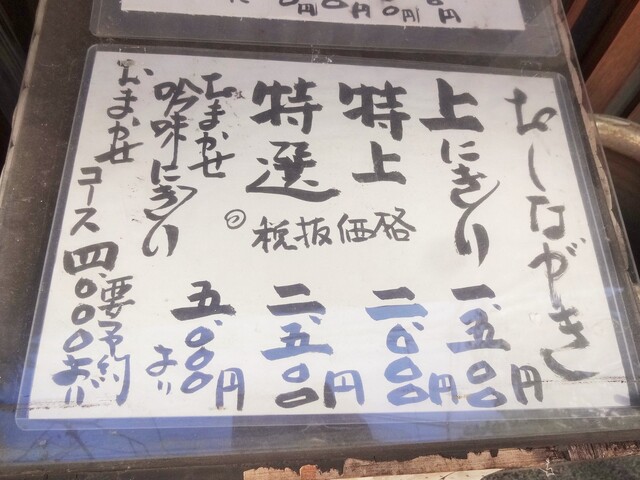 円 円 円 円
おしながき
上にぎり 一、五〇〇円
特上 二、〇〇〇円
特選 二、五〇〇円
◎税抜価格
おまかせ
吟味にぎり 五、〇〇〇円
より
おまかせ
コース 四、〇〇〇より
要予約